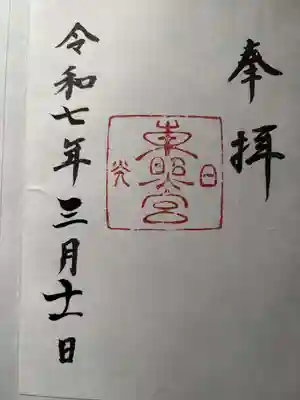 奉拝
日
東照宮
光
令和七年三月十一日